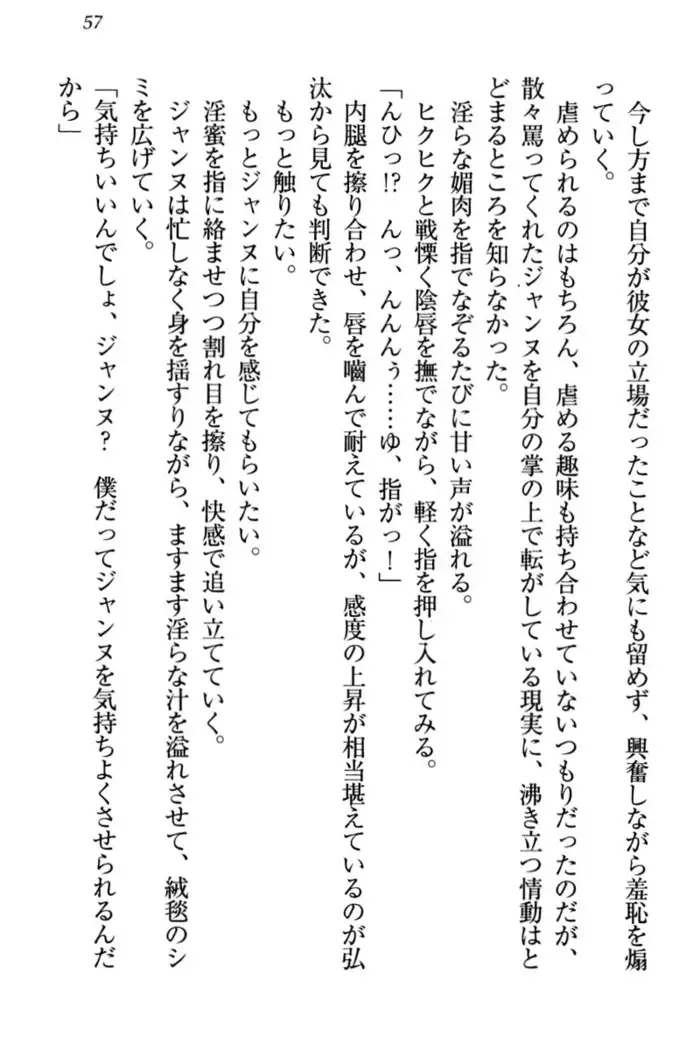 57
今し方まで自分が彼女の立場だったことなど気にも留めず、興奮しながら羞恥を煽
っていく。
虐められるのはもちろん、虐める趣味も持ち合わせていないつもりだったのだが、
散々罵ってくれたジャンヌを自分の掌の上で転がしている現実に、沸き立つ情動はと
どまるところを知らなかった。
淫らな媚肉を指でなぞるたびに甘い声が溢れる。
ヒクヒクと戦慄く陰唇を撫でながら、軽く指を押し入れてみる。
「んひっ!?　んっ、んんんぅ……ゆ、指がっ！」
内腿を擦り合わせ、唇を嚙んで耐えているが、感度の上昇が相当堪えているのが弘
汰から見ても判断できた。
もっと触りたい。
もっとジャンヌに自分を感じてもらいたい。
淫蜜を指に絡ませつつ割れ目を擦り、快感で追い立てていく。
ジャンヌは忙しなく身を揺すりながら、ますます淫らな汁を溢れさせて、絨毯のシ
ミを広げていく。
「気持ちいいんでしょ、ジャンヌ？　僕だってジャンヌを気持ちよくさせられるんだ
から」